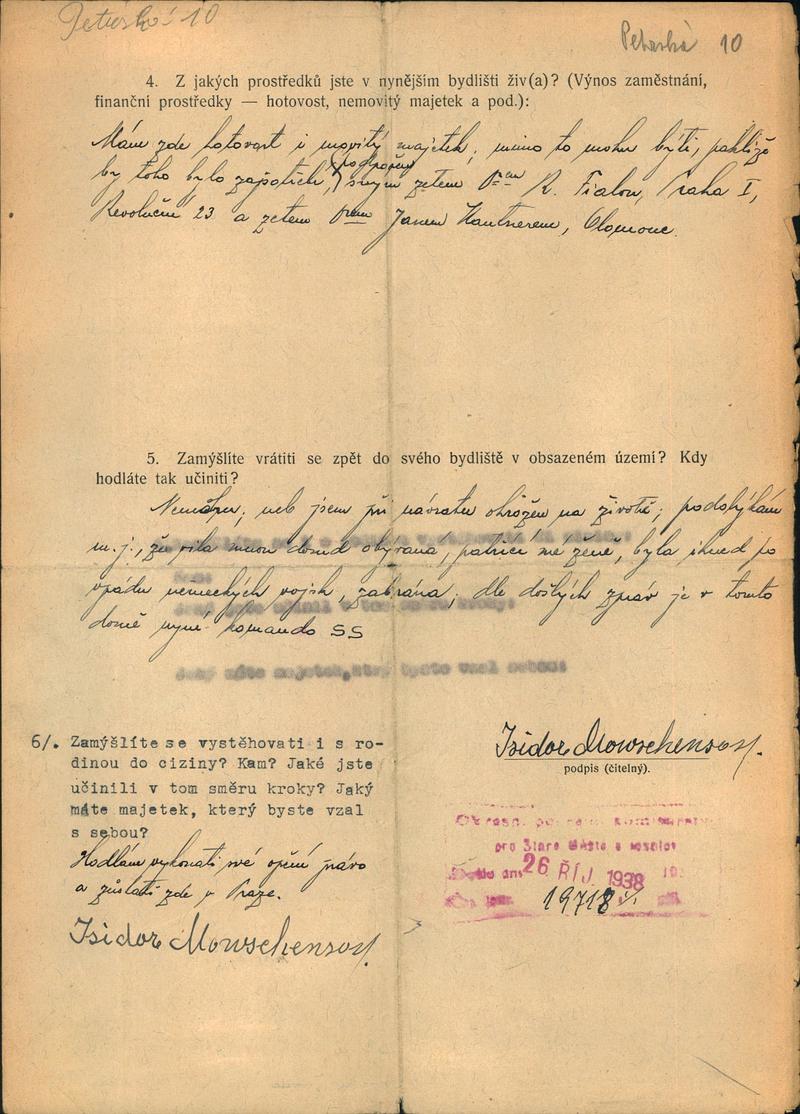 Petrská 10
Petrská 10
4. Z jakých prostředků jste v nynějším bydlišti živ(a)? (Výnos zaměstnání,
finanční prostředky — hotovost, nemovitý majetek a pod.):
Mám zde hotovost i movitý majetek; mimo to mohu býti, pakliže
podporován
by toho bylo zapotřebí, svým zetem Drem R. Fialou, Praha I,
Revoluční 23 a zetem Drem Janem Hautnerem, Olomouc.
5. Zamýšlíte vrátiti se zpět do svého bydliště v obsazeném území? Kdy
hodláte tak učiniti?
Nemohu, neb jsem při návratu ohrožen na životě; podotýkám
m.j., že vila mnou dosud obývaná, patřící mé ženě, byla ihned po
vpádu německých vojsk, zabrána; dle došlých zpráv je v tomto
domě nyní komando SS
Jaký máte majetek, který byste vzal sebou:
6/. Zamýšlíte se vystěhovati i s ro-
dinou do ciziny? Kam? Jaké jste
učinili v tom směru kroky? Jaký
máte majetek, který byste vzal
s sebou?
Hodlám vykonati své opční právo
a zůstati zde v Praze.
Isidor Mowschenson.
Isidor Mowschenson.
podpis (čitelný).
pro Staré Město a Josefov
Došlo dne 26 ŘÍJ 1938
19718